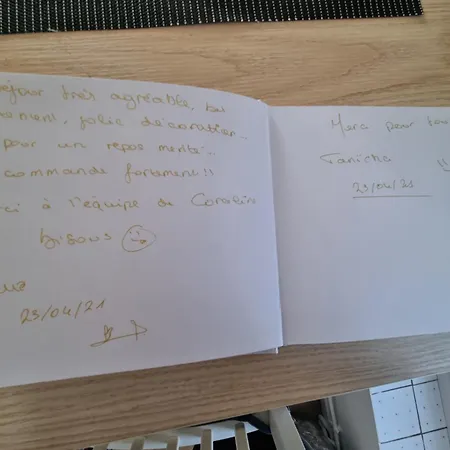 éjour très agréable,
ement, jolie décoration..
pour un repos mérité..
commande fortement!!
ci à l'équipe de
bisous
23/04/21
Merci pour tou
23/04/21
!!